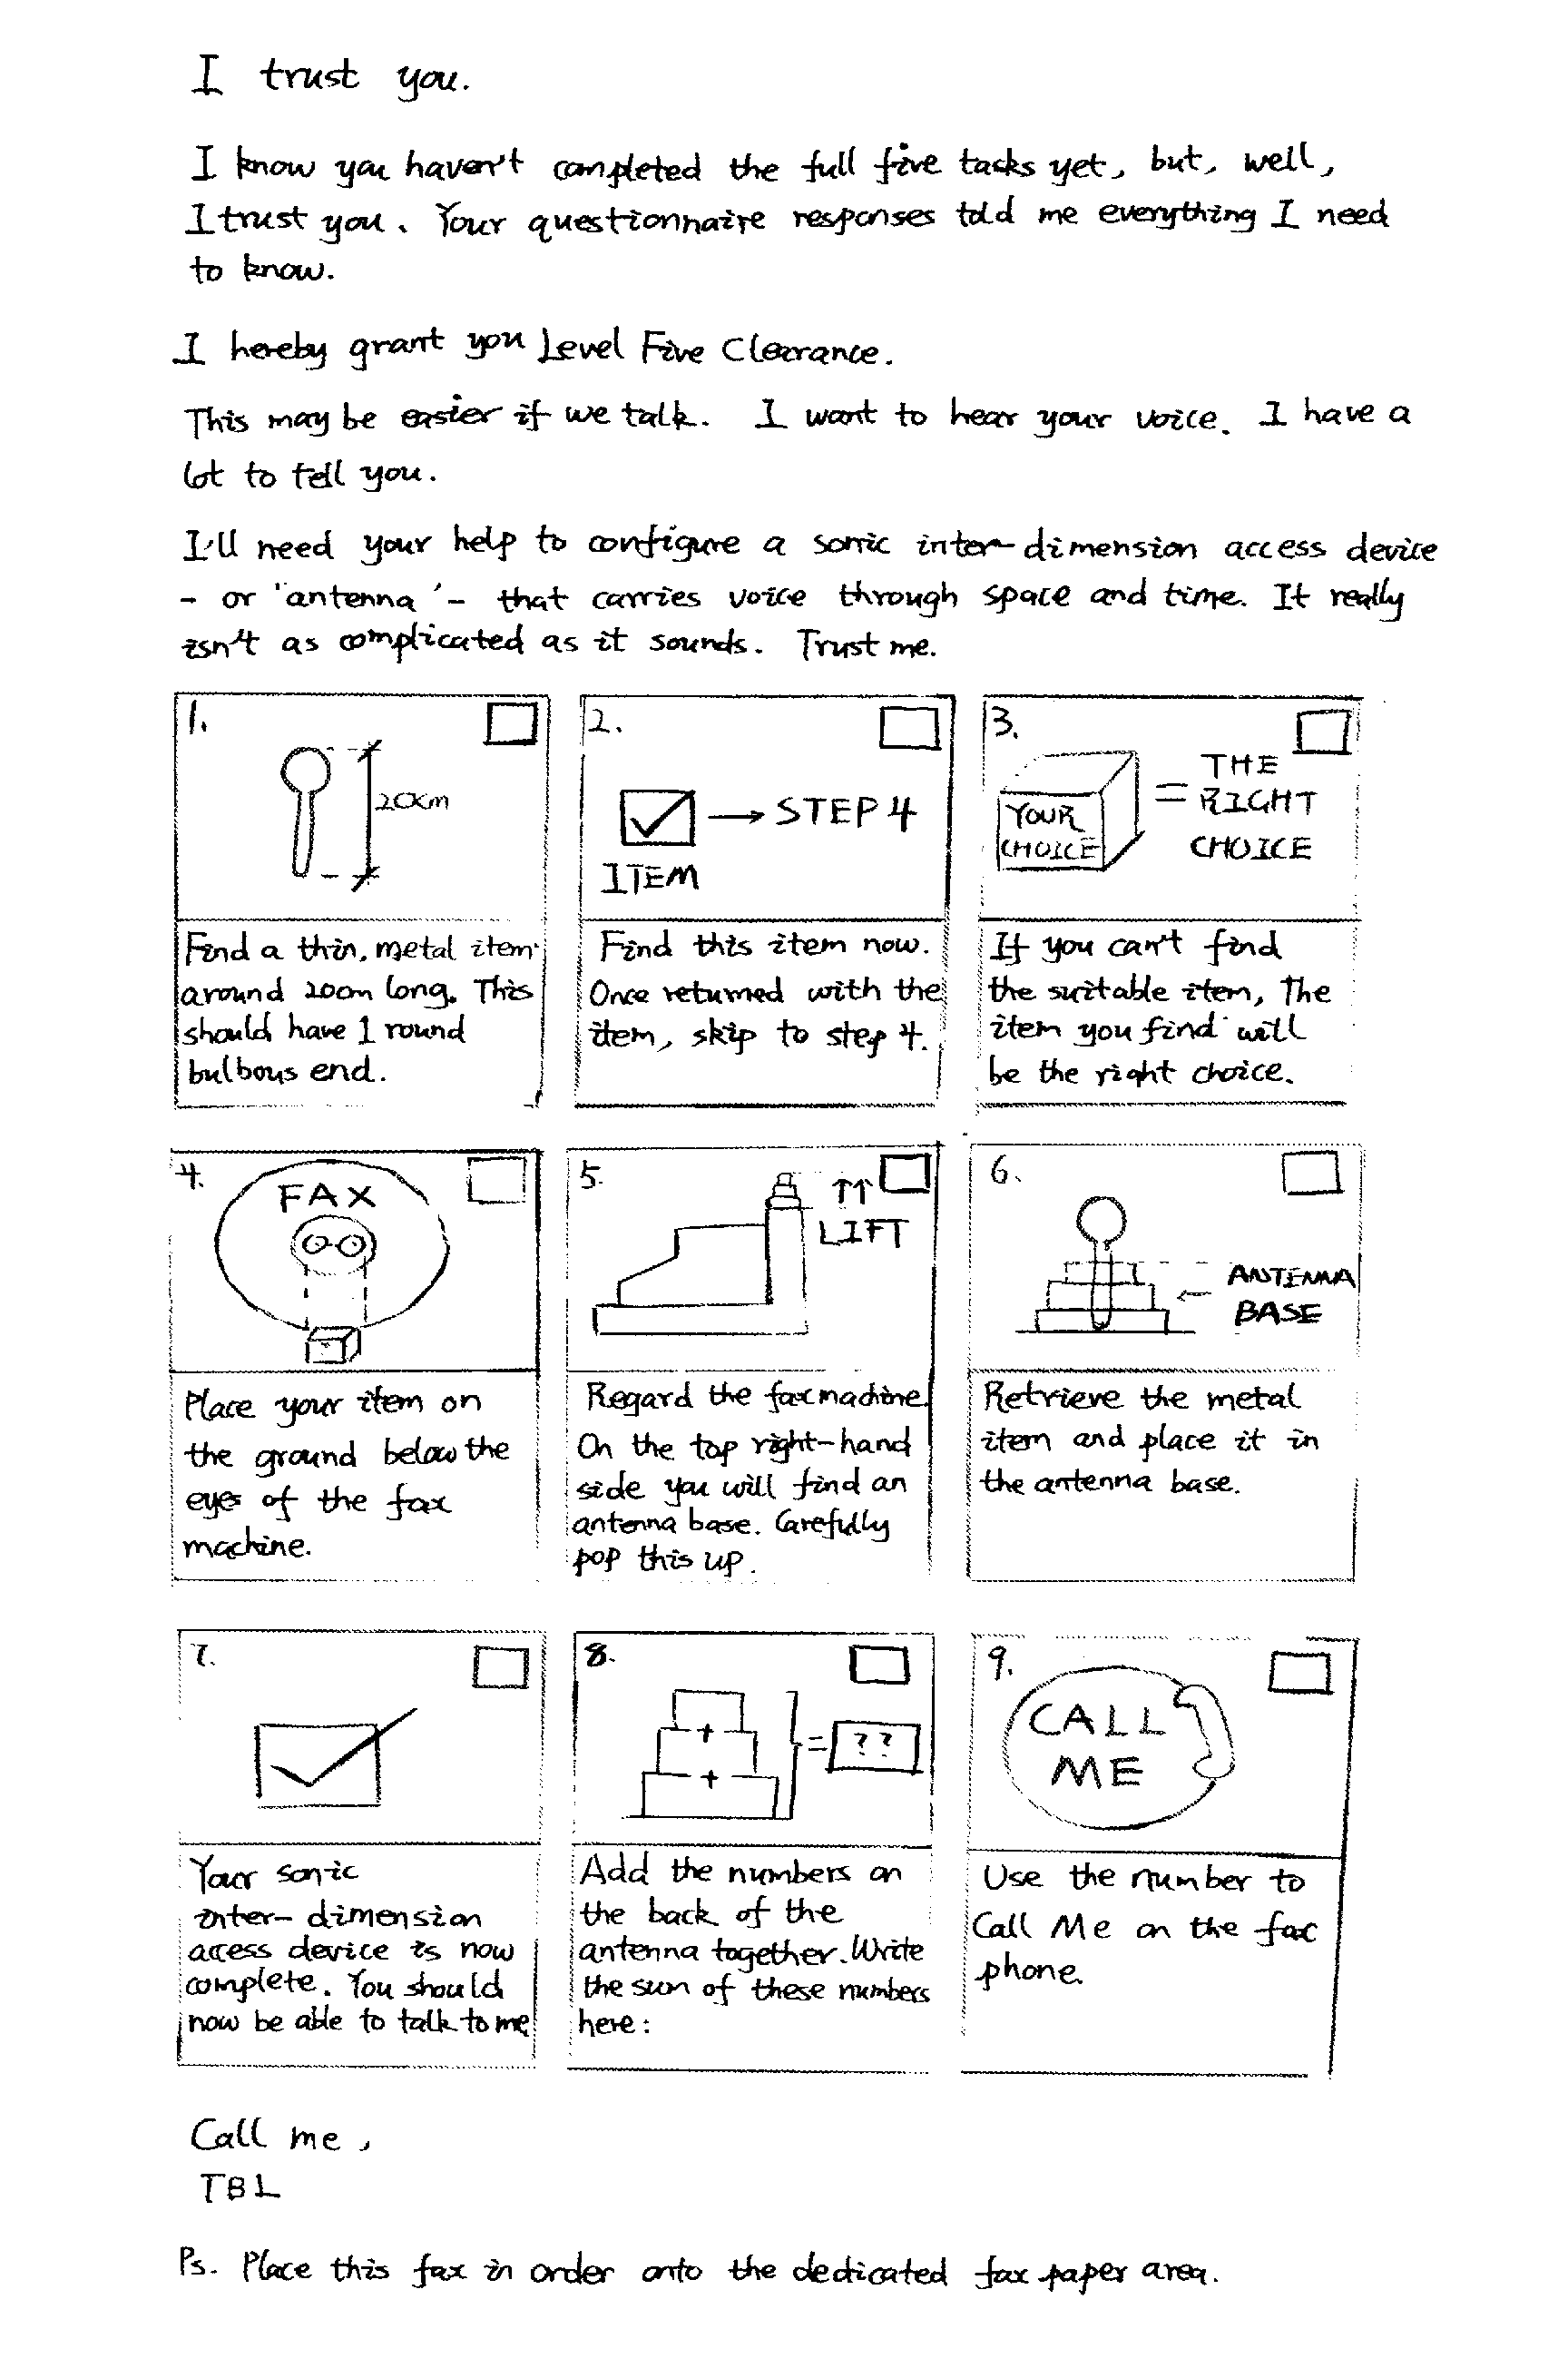 I trust you.
I know you haven't completed the full five tasks yet, but, well,
I trust you. Your questionnaire responses told me everything I need
to know.
I hereby grant you Level Five Clearance.
This may be easier if we talk. I want to hear your voice. I have a
lot to tell you.
I'll need your help to configure a sonic inter-dimension access device
- or 'antenna' - that carries voice through space and time. It really
isn't as complicated as it sounds. Trust me.
1.
20cm
Find a thin, metal item
around 20cm long. This
should have 1 round
bulbous end.
2.
→ STEP 4
ITEM
Find this item now.
Once returned with the
item, skip to step 4.
3.
YOUR
CHOICE
= THE
RIGHT
CHOICE
If you can't find
the suitable item, The
item you find will
be the right choice.
4.
FAX
Place your item on
the ground below the
eyes of the fax
machine.
5.
↑↑
LIFT
Regard the fax machine.
On the top right-hand
side you will find an
antenna base. Carefully
pop this up.
6.
← ANTENNA
BASE
Retrieve the metal
item and place it in
the antenna base.
7.
Your sonic
inter-dimension
access device is now
complete. You should
now be able to talk to me
8.
+
+
= ??
Add the numbers on
the back of the
antenna together. Write
the sum of these numbers
here:
9.
CALL
ME
Use the number to
Call Me on the fax
phone.
Call me,
TBL
Ps. Place this fax in order onto the dedicated fax paper area.